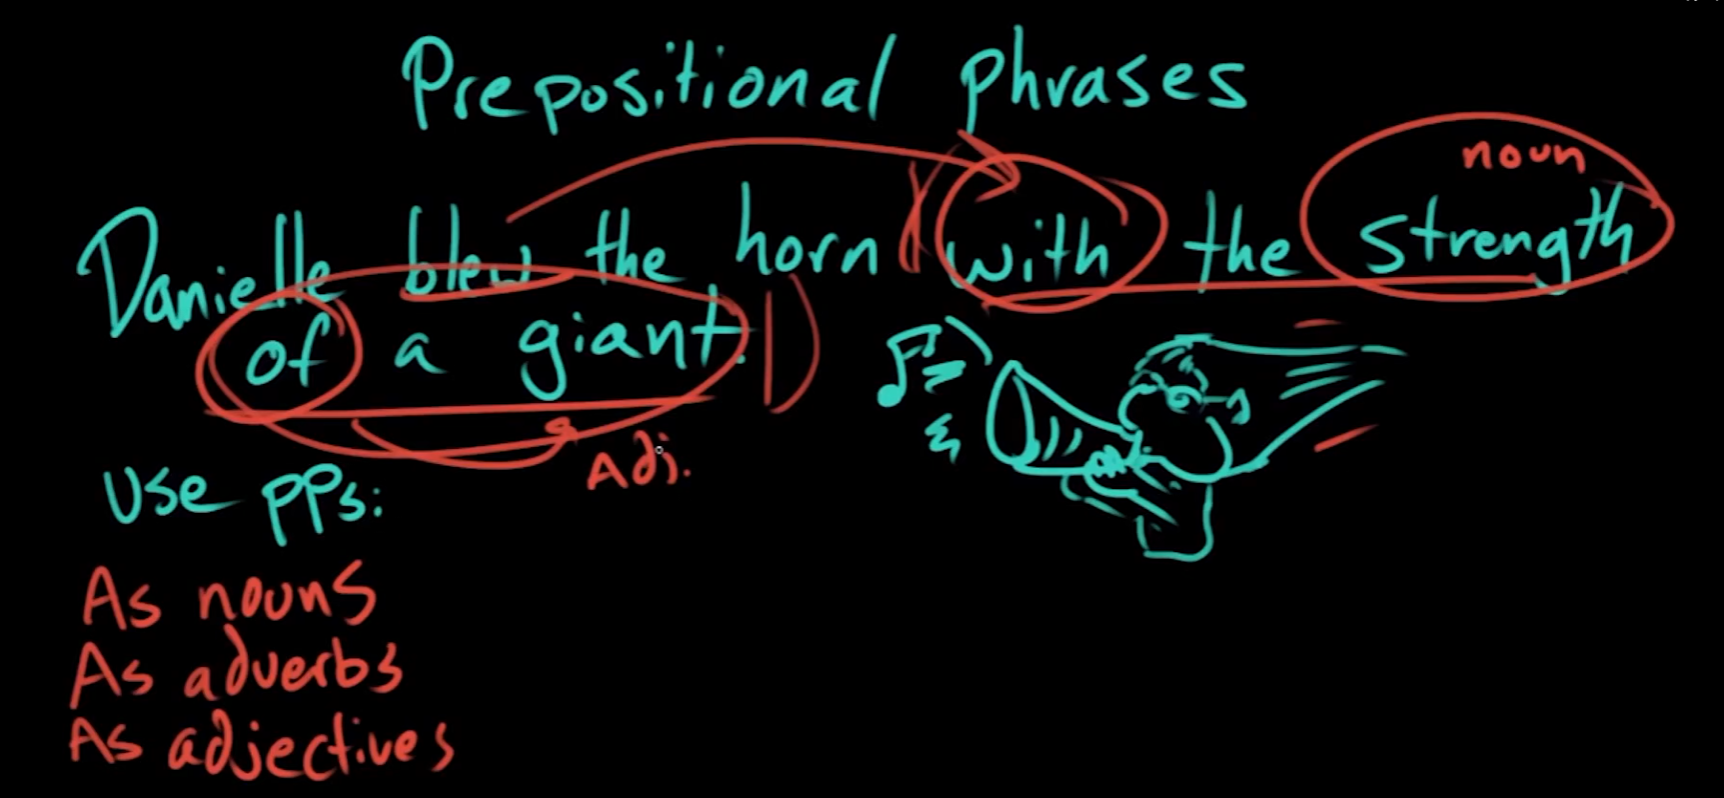 Prepositional phrases
noun
Danielle blew the horn with the strength
of a giant.
Adj.
Use PPs:
As nouns
As adverbs
As adjectives